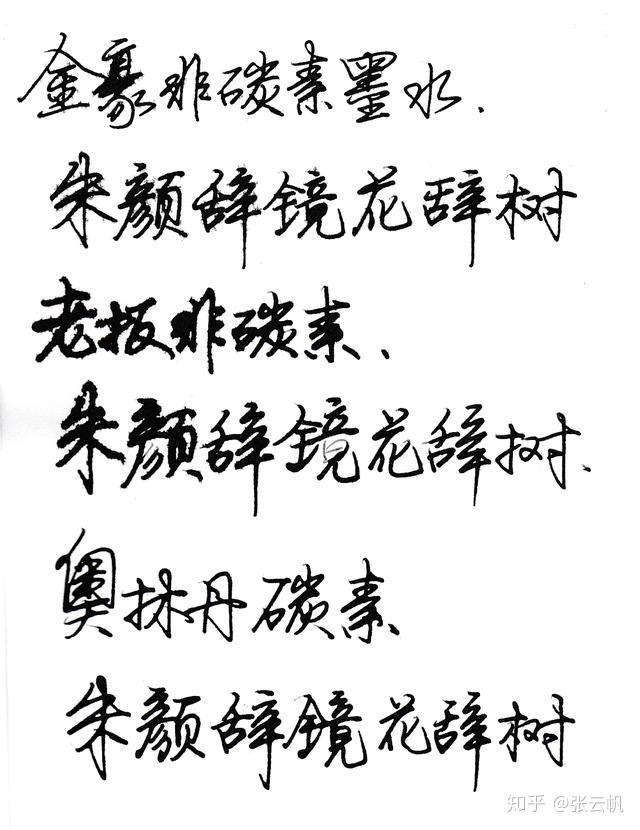 金豪非碳素墨水.
朱颜辞镜花辞树
老板非碳素、
朱颜辞镜花辞树、
奥林丹碳素
朱颜辞镜花辞树
知乎 @张云帆